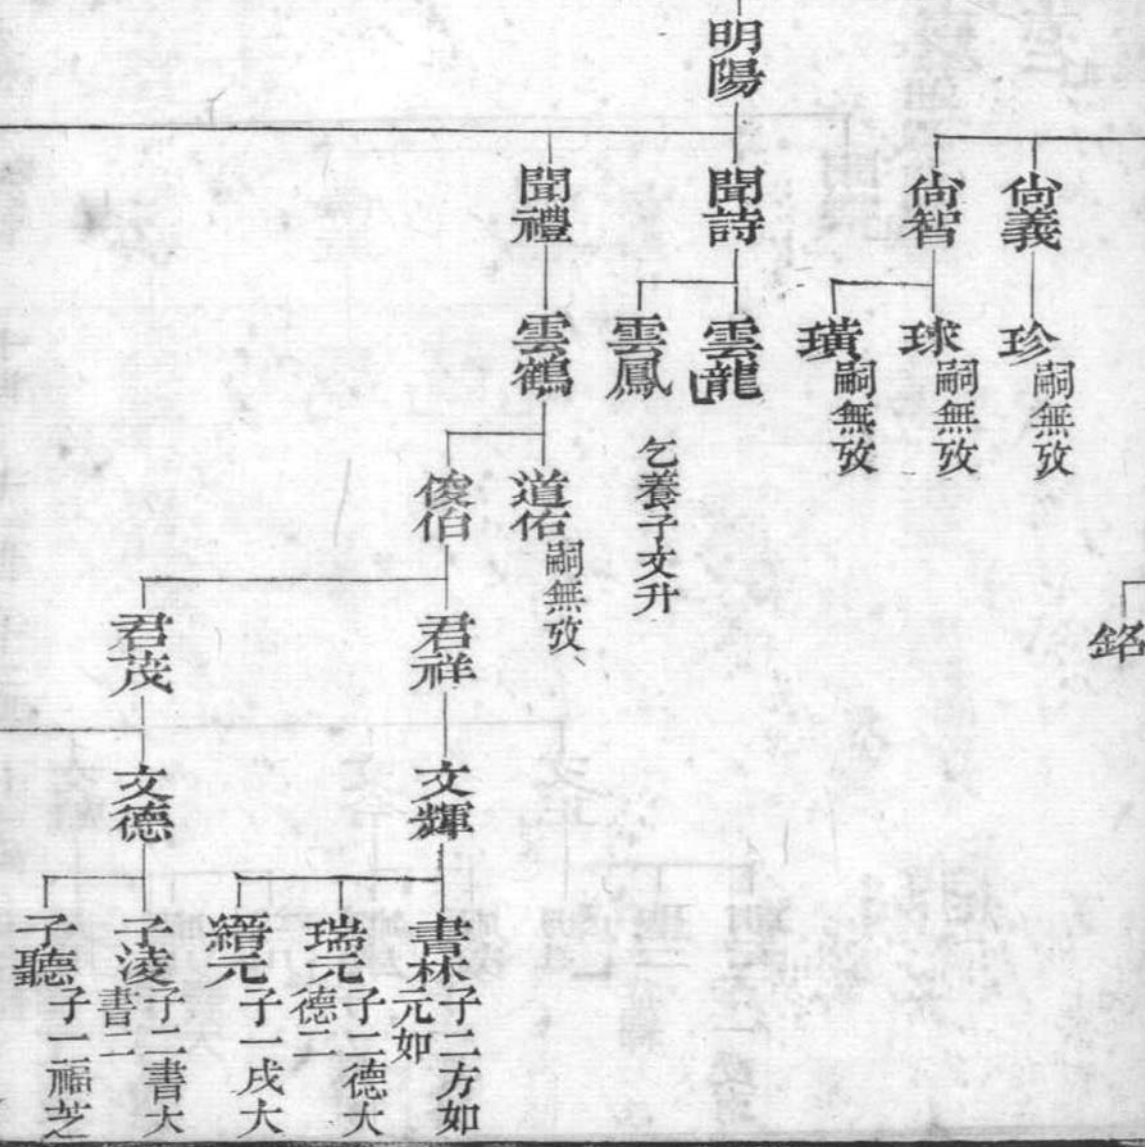 明陽
尙義
尙智
聞詩
聞禮
珍 嗣無攷
球 嗣無攷
璜 嗣無攷
雲龍
雲鳳 乞養子文升
雲鶴
道佑 嗣無攷、
俊伯
銘
君祥
君茂
文輝
文德
書林 子二方如
元如
瑞元 子二德大
德二
縉元 子一戌大
子淩 子二書大
書二
子聽 子一福芝